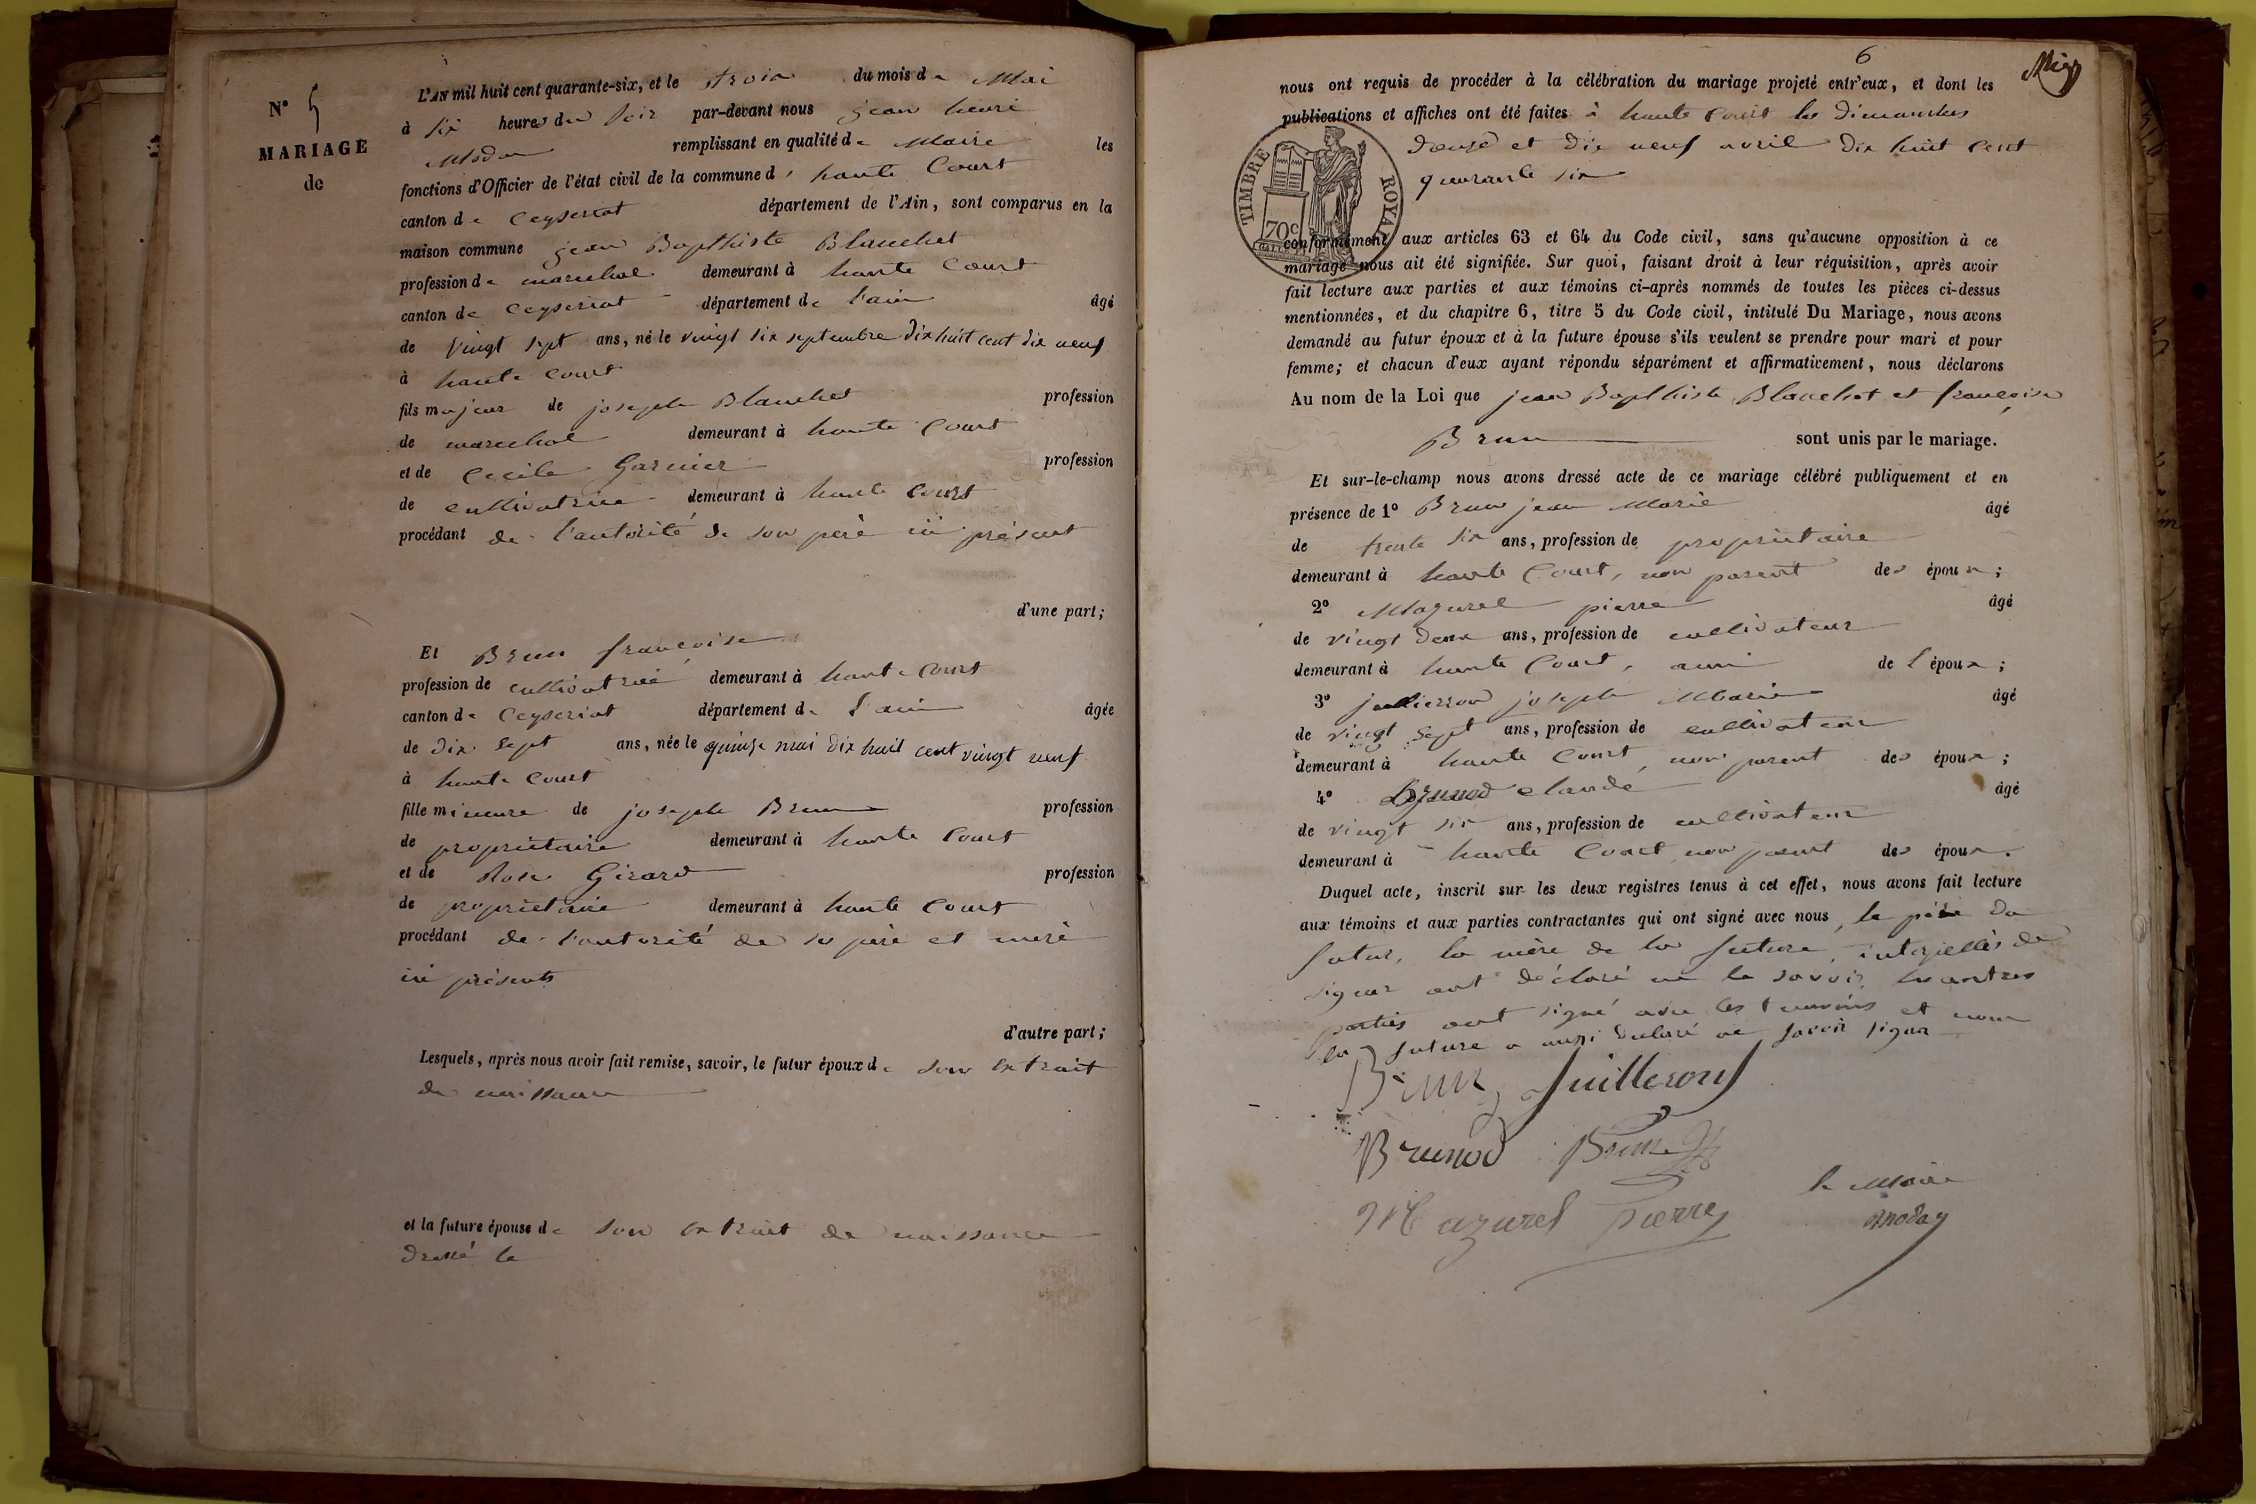 N° 5
MARIAGE
de
L'AN mil huit cent quarante-six, et le trois du mois de Mai
à six heures du soir par-devant nous jean henri
Moda remplissant en qualité de Maire les
fonctions d'Officier de l'état civil de la commune d haute Court
canton de Ceyseriat département de l'Ain, sont comparus en la
maison commune jean Bapthiste Blanchet
profession de marechal demeurant à haute Court
canton de Ceyseriat département de l'ain âgé
de vingt sept ans, né le vingt six septembre dix huit cent dix neuf
à haute Court
fils majeur de joseph Blanchet profession
de marechal demeurant à haute Court
et de Cecile Garnier profession
de cultivatrice demeurant à haute Court
procédant de l'autorité de son père ici présent
d'une part;
Et Brun françoise
profession de cultivatrice demeurant à haute Court
canton de Ceyseriat département de l'ain âgée
de dix sept ans, née le quinze mai dix huit cent vingt neuf
à haute Court
fille mineure de joseph Brun profession
de proprietaire demeurant à haute Court
et de Rose Girard profession
de proprietaire demeurant à haute Court
procédant de l'autorité de ses père et mère
ici présents
d'autre part;
Lesquels, après nous avoir fait remise, savoir, le futur époux de son extrait
de naissance
et la future épouse de son extrait de naissance
dressé le
6
nous ont requis de procéder à la célébration du mariage projeté entr'eux, et dont les
publications et affiches ont été faites à haute Court les dimanches
douze et dix neuf avril dix huit cent
quarante six
TIMBRE ROYAL
70c
conformément aux articles 63 et 64 du Code civil, sans qu'aucune opposition à ce
mariage nous ait été signifiée. Sur quoi, faisant droit à leur réquisition, après avoir
fait lecture aux parties et aux témoins ci-après nommés de toutes les pièces ci-dessus
mentionnées, et du chapitre 6, titre 5 du Code civil, intitulé Du Mariage, nous avons
demandé au futur époux et à la future épouse s'ils veulent se prendre pour mari et pour
femme; et chacun d'eux ayant répondu séparément et affirmativement, nous déclarons
Au nom de la Loi que jean Bapthiste Blanchet et françoise
Brun sont unis par le mariage.
Et sur-le-champ nous avons dressé acte de ce mariage célébré publiquement et en
présence de 1° Brun jean Marie âgé
de trente six ans, profession de proprietaire
demeurant à haute Court, non parent des époux;
2° Mazurel pierre âgé
de vingt deux ans, profession de cultivateur
demeurant à haute Court, ami de l'époux;
3° juilleron joseph Marie âgé
de vingt sept ans, profession de cultivateur
demeurant à haute Court, non parent des époux;
4° Brunod claude âgé
de vingt six ans, profession de cultivateur
demeurant à haute Court non parent des époux.
Duquel acte, inscrit sur les deux registres tenus à cet effet, nous avons fait lecture
aux témoins et aux parties contractantes qui ont signé avec nous, le père du
futur, la mère de la future, interpellés de
signer ont déclaré ne le savoir, les autres
parties ont signé avec les temoins et nous
la future a aussi declaré ne savoir signer
Brun Juilleron
Brunod Brun
Mazurel Pierre le Maire
Moda